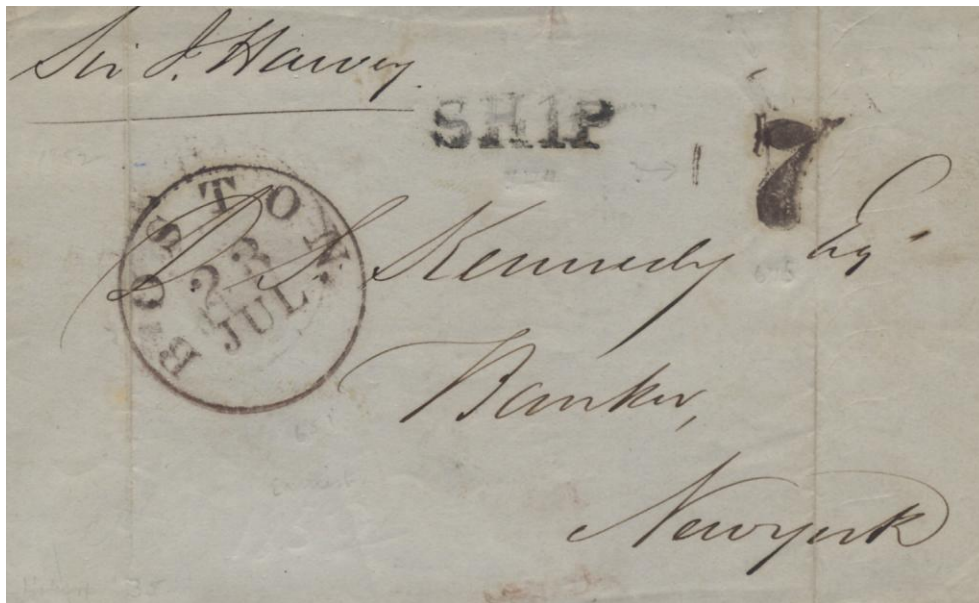 Sir J. Harvey
SHIP
7
BOSTON
23
JUL
D. S. Kennedy Esqr
Banker,
Newyork